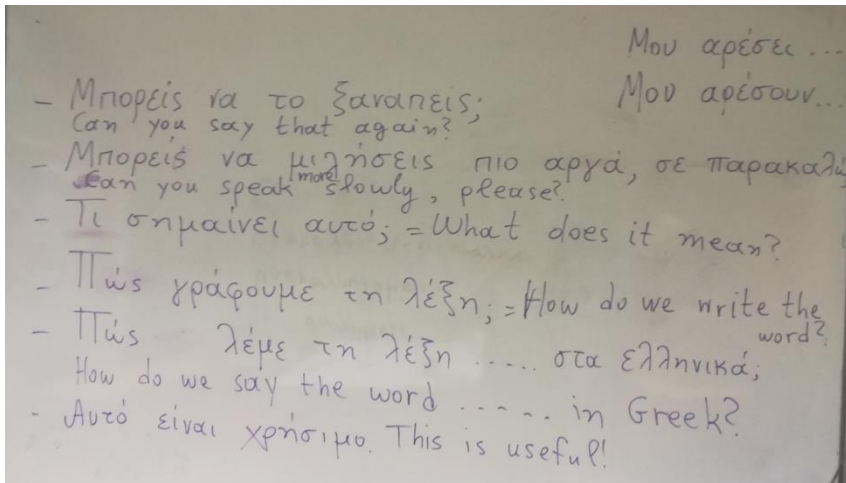 Μου αρέσει ...
Μου αρέσουν...
- Μπορείς να το ξαναπείς;
Can you say that again?
- Μπορείς να μιλήσεις πιο αργά, σε παρακαλώ
Can you speak more slowly, please?
- Τι σημαίνει αυτό; = What does it mean?
- Πώς γράφουμε τη λέξη; = How do we write the
word?
- Πώς λέμε τη λέξη ..... στα ελληνικά;
How do we say the word ...... in Greek?
- Αυτό είναι χρήσιμο. This is useful!